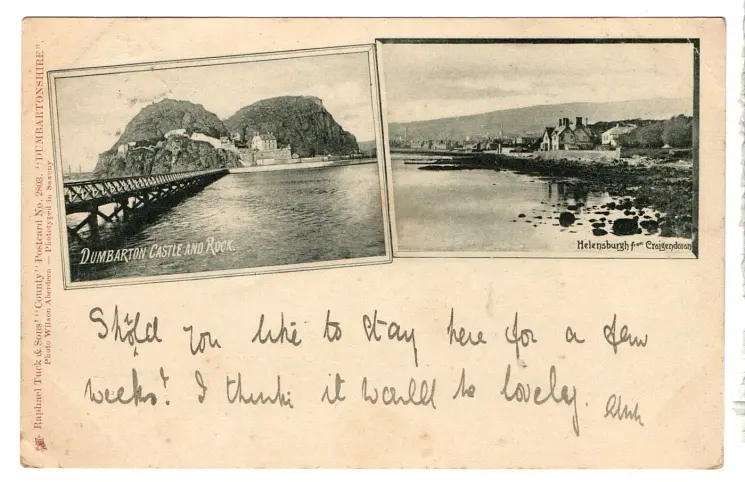 Raphael Tuck & Sons' "County" Postcard No. 2808. "DUMBARTONSHIRE".
Photo Wilson Aberdeen — Phototyped in Saxony
DUMBARTON CASTLE AND ROCK.
Helensburgh from Craigendoran
Sh'd you like to stay here for a few
weeks? I think it would be lovely.